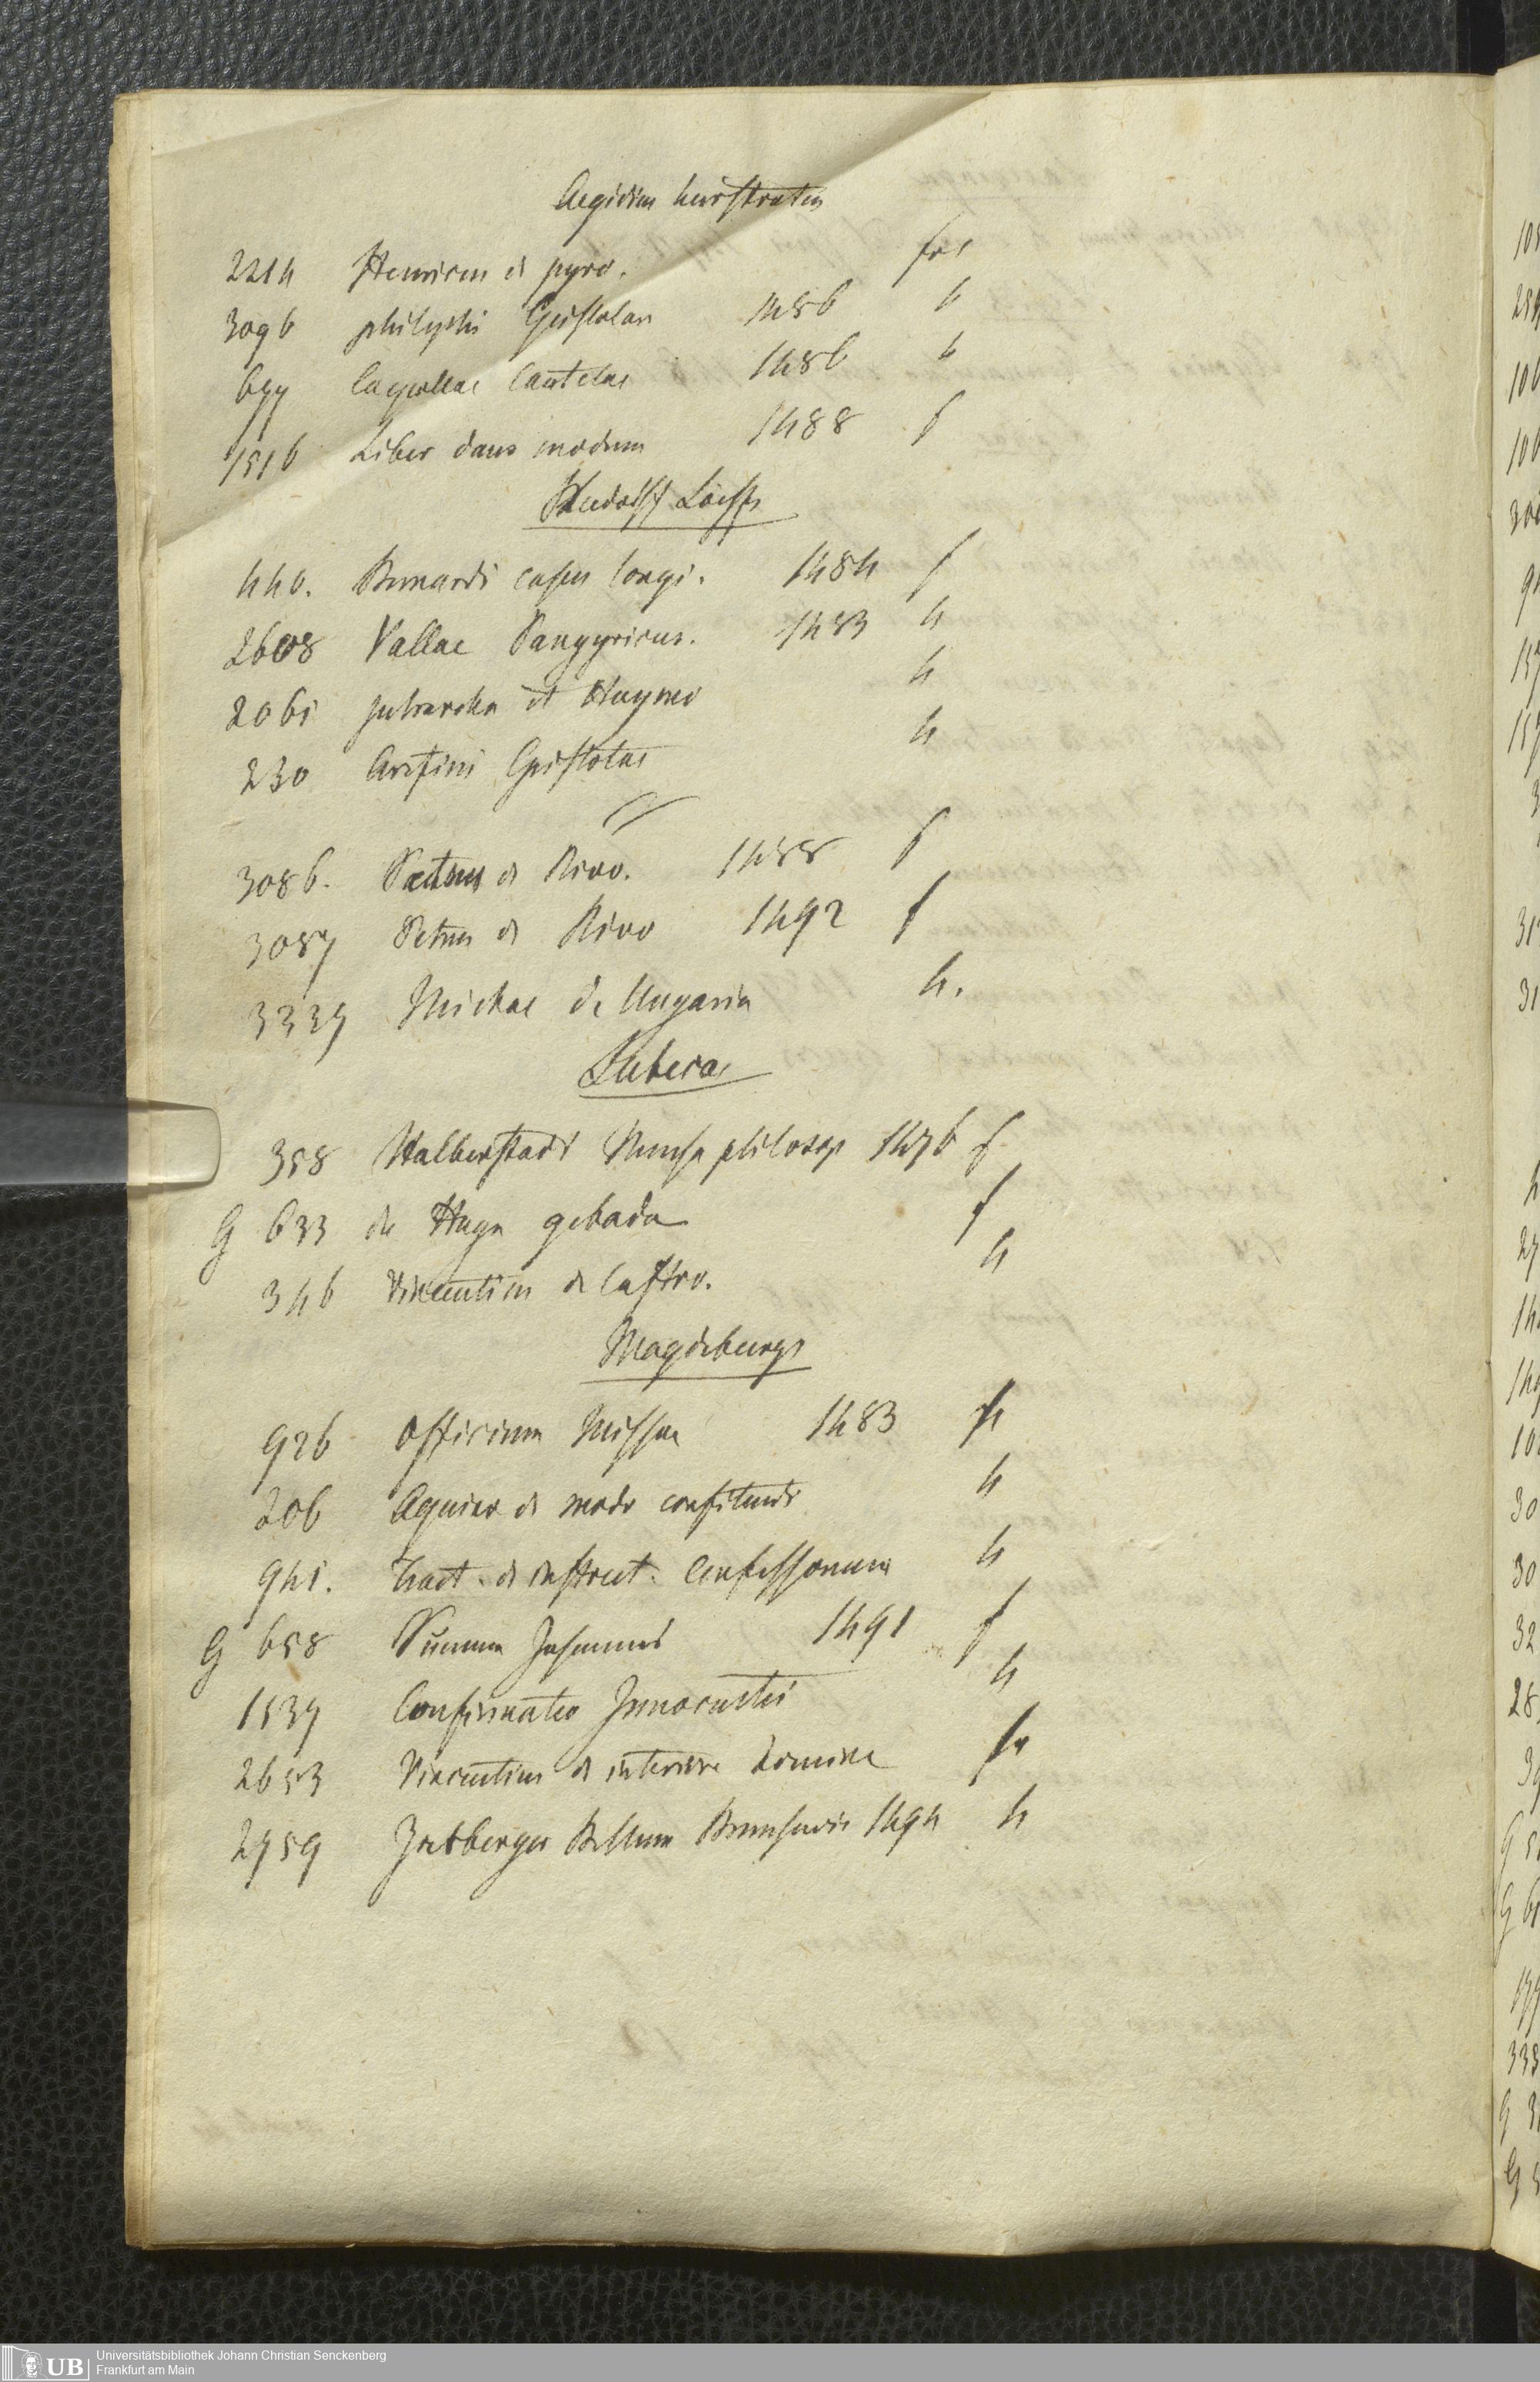 Aegidium heerstraten
2214 Henricus de pyro. fol
3096 philelphi Epistolar 1486 4
677 Caepollae Cautelae 1486 4
1516 Liber dans modum 1488 f
Rudolff Loeffs
440. Bernardi casus longi. 1484 f
2608 Vallae Panegyricus. 1483 4
2061 petrarcha et Haymo 4
230 Aretini Epistolae 4
3086. Petrus de Rivo. 1488 f
3087 Petrus de Rivo 1492 f
3339 Michae de Ungaria 4.
Lubecae
358 Halberstadt Mensa philosop 1476 f
G 633 de Huga gebada f
346 Vincentius de Castro. 4
Magdeburgi
926 Officium Missae 1483 4
206 Aquino de modo confitendi 4
941. Tract. de instruct. Confessorum 4
G 658 Summa Johannis 1491 f
1537 Confirmatio Innocentii 4
2653 Vincentius de interiore homine 4
2759 Bellum 1494 4
Universitätsbibliothek Johann Christian Senckenberg
Frankfurt am Main
UB